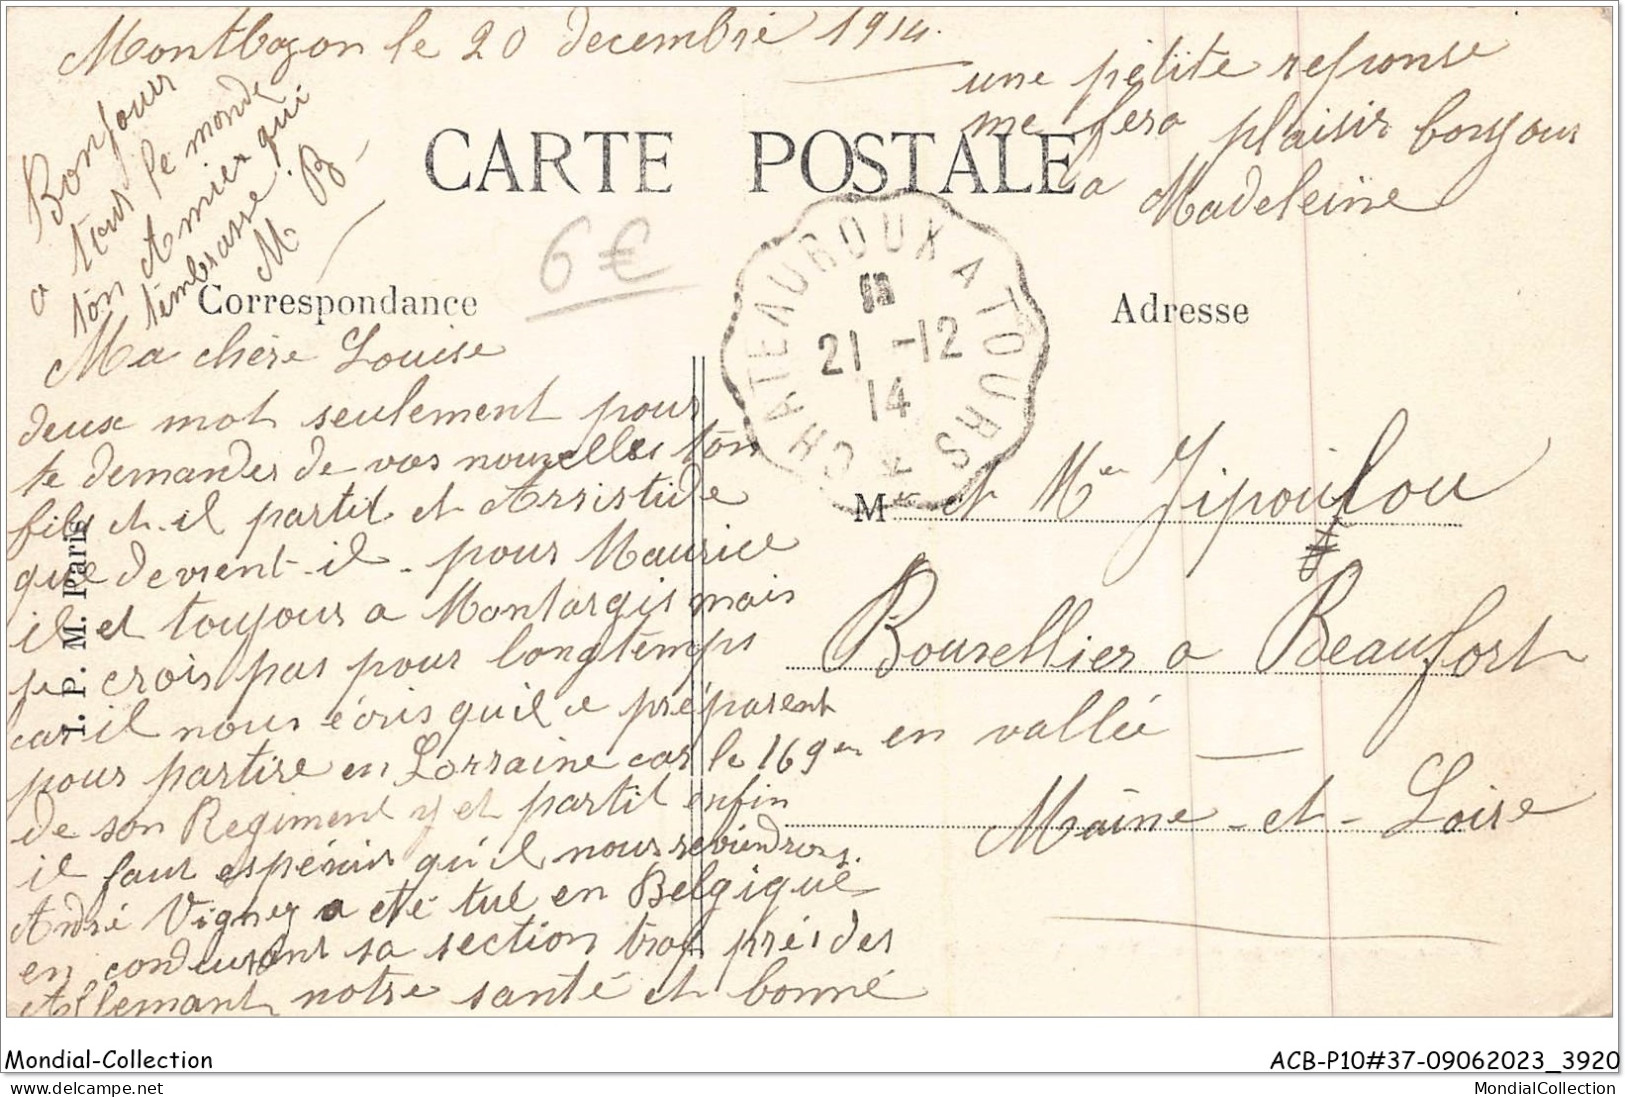 Montbazon le 20 decembre 1914.
une petite reponse
me fera plaisir bonjour
a Madeleine
Bonjour
a tous le monde
ton Amier qui
t'embrasse.
M B
CARTE POSTALE
6€
CHATEAUROUX A TOURS
21 -12
14
Correspondance
Adresse
Ma chère Louise
deux mot seulement pour
te demander de vos nouvelles ton
fils et-il partit et Aristide
que devient-il - pour Maurice
il et toujours a Montargis mais
je crois pas pour longtemps
car il nous écris qu'il ce préparent
pour partire en Lorraine car le 169em
de son Regiment y et partit enfin
il faut espérer qu'il nous reviendrons.
André Vigney a été tué en Belgique
en conduisant sa section trop près des
Allemant notre santé et bonne
I. P. M. Paris
M et Mme Jipoulou
Bourellier a Beaufort
en vallée
Maine-et-Loire
Mondial-Collection
ACB-P10#37-09062023_3920
delcampe.net
MondialCollection